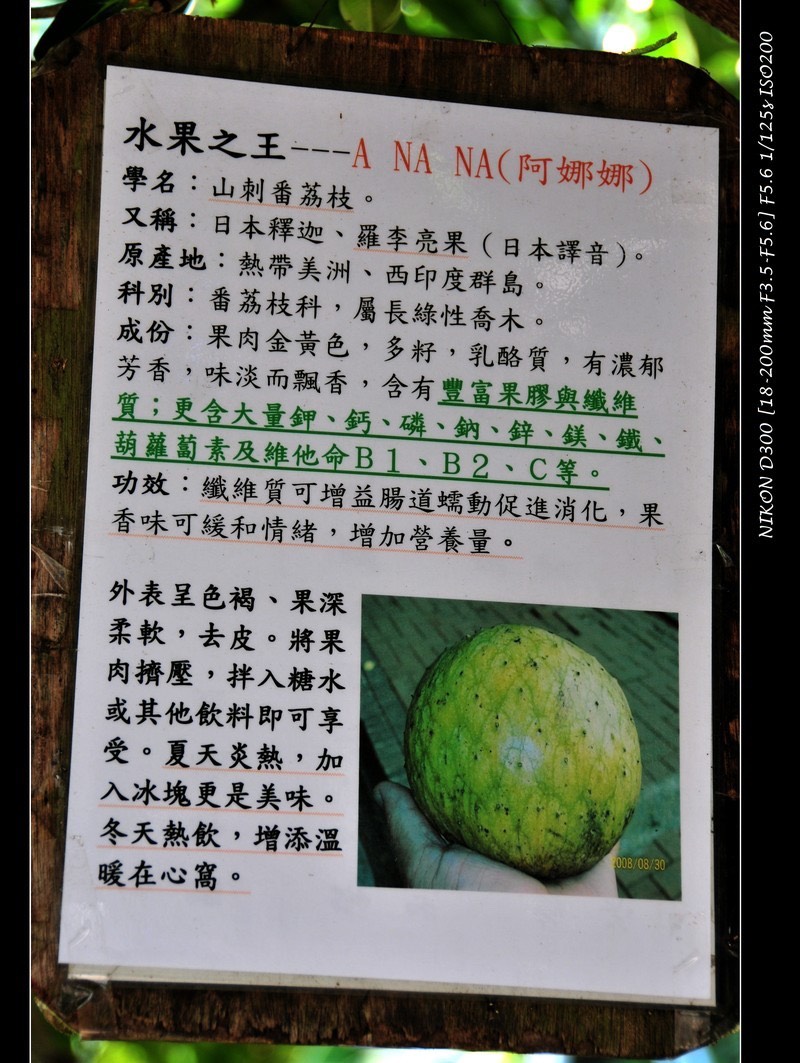 水果之王---A NA NA(阿娜娜)
學名：山刺番荔枝。
又稱：日本釋迦、羅李亮果（日本譯音）。
原產地：熱帶美洲、西印度群島。
科別：番荔枝科，屬長綠性喬木。
成份：果肉金黃色，多籽，乳酪質，有濃郁
芳香，味淡而飄香，含有豐富果膠與纖維
質；更含大量鉀、鈣、磷、鈉、鋅、鎂、鐵、
葫蘿蔔素及維他命Ｂ１、Ｂ２、Ｃ等。
功效：纖維質可增益腸道蠕動促進消化，果
香味可緩和情緒，增加營養量。
外表呈色褐、果深
柔軟，去皮。將果
肉擠壓，拌入糖水
或其他飲料即可享
受。夏天炎熱，加
入冰塊更是美味。
冬天熱飲，增添溫
暖在心窩。
2008/08/30
NIKON D300 [18-200mm F3.5-F5.6] F5.6 1/125s ISO200